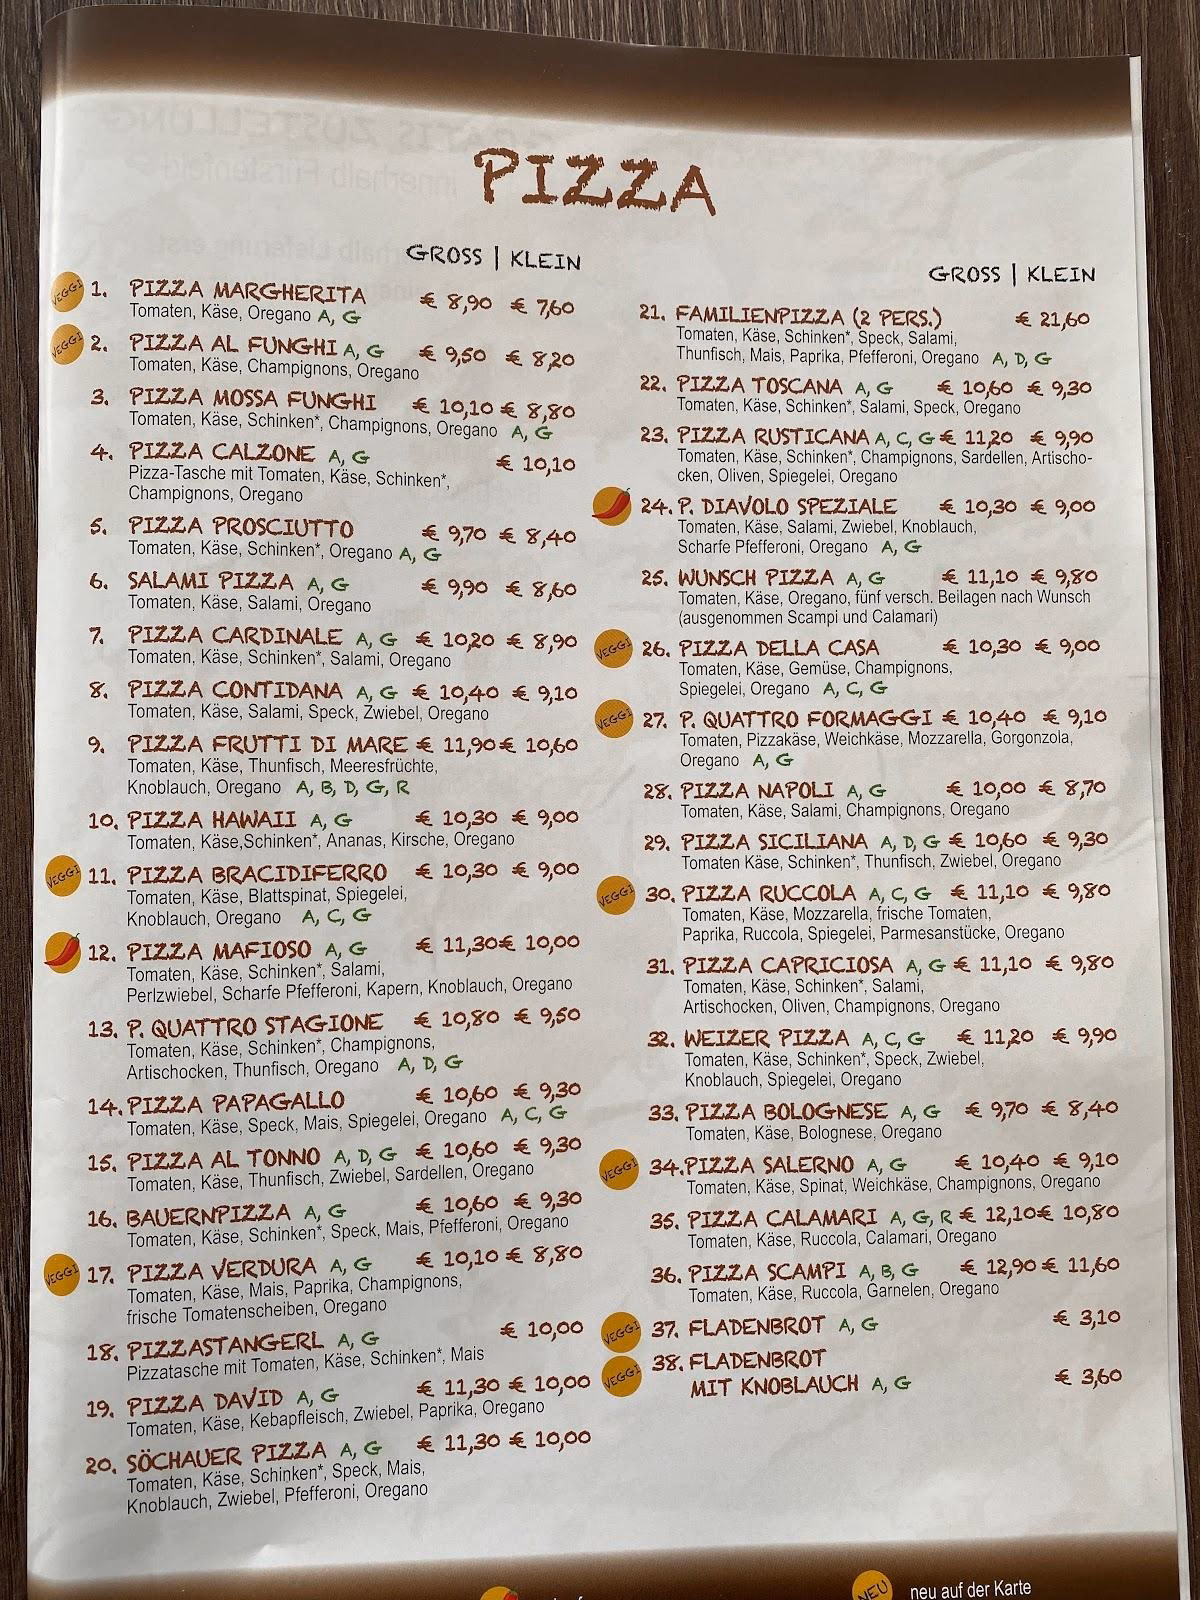 PIZZA
GROSS | KLEIN
VEGGI 1. PIZZA MARGHERITA € 8,90 € 7,60
Tomaten, Käse, Oregano A, G
VEGGI 2. PIZZA AL FUNGHI A, G € 9,50 € 8,20
Tomaten, Käse, Champignons, Oregano
3. PIZZA MOSSA FUNGHI € 10,10 € 8,80
Tomaten, Käse, Schinken*, Champignons, Oregano A, G
4. PIZZA CALZONE A, G € 10,10
Pizza-Tasche mit Tomaten, Käse, Schinken*,
Champignons, Oregano
5. PIZZA PROSCIUTTO € 9,70 € 8,40
Tomaten, Käse, Schinken*, Oregano A, G
6. SALAMI PIZZA A, G € 9,90 € 8,60
Tomaten, Käse, Salami, Oregano
7. PIZZA CARDINALE A, G € 10,20 € 8,90
Tomaten, Käse, Schinken*, Salami, Oregano
8. PIZZA CONTIDANA A, G € 10,40 € 9,10
Tomaten, Käse, Salami, Speck, Zwiebel, Oregano
9. PIZZA FRUTTI DI MARE € 11,90 € 10,60
Tomaten, Käse, Thunfisch, Meeresfrüchte,
Knoblauch, Oregano A, B, D, G, R
10. PIZZA HAWAII A, G € 10,30 € 9,00
Tomaten, Käse,Schinken*, Ananas, Kirsche, Oregano
VEGGI 11. PIZZA BRACIDIFERRO € 10,30 € 9,00
Tomaten, Käse, Blattspinat, Spiegelei,
Knoblauch, Oregano A, C, G
12. PIZZA MAFIOSO A, G € 11,30 € 10,00
Tomaten, Käse, Schinken*, Salami,
Perlzwiebel, Scharfe Pfefferoni, Kapern, Knoblauch, Oregano
13. P. QUATTRO STAGIONE € 10,80 € 9,50
Tomaten, Käse, Schinken*, Champignons,
Artischocken, Thunfisch, Oregano A, D, G
14. PIZZA PAPAGALLO € 10,60 € 9,30
Tomaten, Käse, Speck, Mais, Spiegelei, Oregano A, C, G
15. PIZZA AL TONNO A, D, G € 10,60 € 9,30
Tomaten, Käse, Thunfisch, Zwiebel, Sardellen, Oregano
16. BAUERNPIZZA A, G € 10,60 € 9,30
Tomaten, Käse, Schinken*, Speck, Mais, Pfefferoni, Oregano
VEGGI 17. PIZZA VERDURA A, G € 10,10 € 8,80
Tomaten, Käse, Mais, Paprika, Champignons,
frische Tomatenscheiben, Oregano
18. PIZZASTANGERL A, G € 10,00
Pizzatasche mit Tomaten, Käse, Schinken*, Mais
19. PIZZA DAVID A, G € 11,30 € 10,00
Tomaten, Käse, Kebapfleisch, Zwiebel, Paprika, Oregano
20. SÖCHAUER PIZZA A, G € 11,30 € 10,00
Tomaten, Käse, Schinken*, Speck, Mais,
Knoblauch, Zwiebel, Pfefferoni, Oregano
GROSS | KLEIN
21. FAMILIENPIZZA (2 PERS.) € 21,60
Tomaten, Käse, Schinken*, Speck, Salami,
Thunfisch, Mais, Paprika, Pfefferoni, Oregano A, D, G
22. PIZZA TOSCANA A, G € 10,60 € 9,30
Tomaten, Käse, Schinken*, Salami, Speck, Oregano
23. PIZZA RUSTICANA A, C, G € 11,20 € 9,90
Tomaten, Käse, Schinken*, Champignons, Sardellen, Artischo-
cken, Oliven, Spiegelei, Oregano
24. P. DIAVOLO SPEZIALE € 10,30 € 9,00
Tomaten, Käse, Salami, Zwiebel, Knoblauch,
Scharfe Pfefferoni, Oregano A, G
25. WUNSCH PIZZA A, G € 11,10 € 9,80
Tomaten, Käse, Oregano, fünf versch. Beilagen nach Wunsch
(ausgenommen Scampi und Calamari)
VEGGI 26. PIZZA DELLA CASA € 10,30 € 9,00
Tomaten, Käse, Gemüse, Champignons,
Spiegelei, Oregano A, C, G
VEGGI 27. P. QUATTRO FORMAGGI € 10,40 € 9,10
Tomaten, Pizzakäse, Weichkäse, Mozzarella, Gorgonzola,
Oregano A, G
28. PIZZA NAPOLI A, G € 10,00 € 8,70
Tomaten, Käse, Salami, Champignons, Oregano
29. PIZZA SICILIANA A, D, G € 10,60 € 9,30
Tomaten Käse, Schinken*, Thunfisch, Zwiebel, Oregano
VEGGI 30. PIZZA RUCCOLA A, C, G € 11,10 € 9,80
Tomaten, Käse, Mozzarella, frische Tomaten,
Paprika, Ruccola, Spiegelei, Parmesanstücke, Oregano
31. PIZZA CAPRICIOSA A, G € 11,10 € 9,80
Tomaten, Käse, Schinken*, Salami,
Artischocken, Oliven, Champignons, Oregano
32. WEIZER PIZZA A, C, G € 11,20 € 9,90
Tomaten, Käse, Schinken*, Speck, Zwiebel,
Knoblauch, Spiegelei, Oregano
33. PIZZA BOLOGNESE A, G € 9,70 € 8,40
Tomaten, Käse, Bolognese, Oregano
VEGGI 34. PIZZA SALERNO A, G € 10,40 € 9,10
Tomaten, Käse, Spinat, Weichkäse, Champignons, Oregano
35. PIZZA CALAMARI A, G, R € 12,10 € 10,80
Tomaten, Käse, Ruccola, Calamari, Oregano
36. PIZZA SCAMPI A, B, G € 12,90 € 11,60
Tomaten, Käse, Ruccola, Garnelen, Oregano
VEGGI 37. FLADENBROT A, G € 3,10
VEGGI 38. FLADENBROT
MIT KNOBLAUCH A, G € 3,60
NEU neu auf der Karte